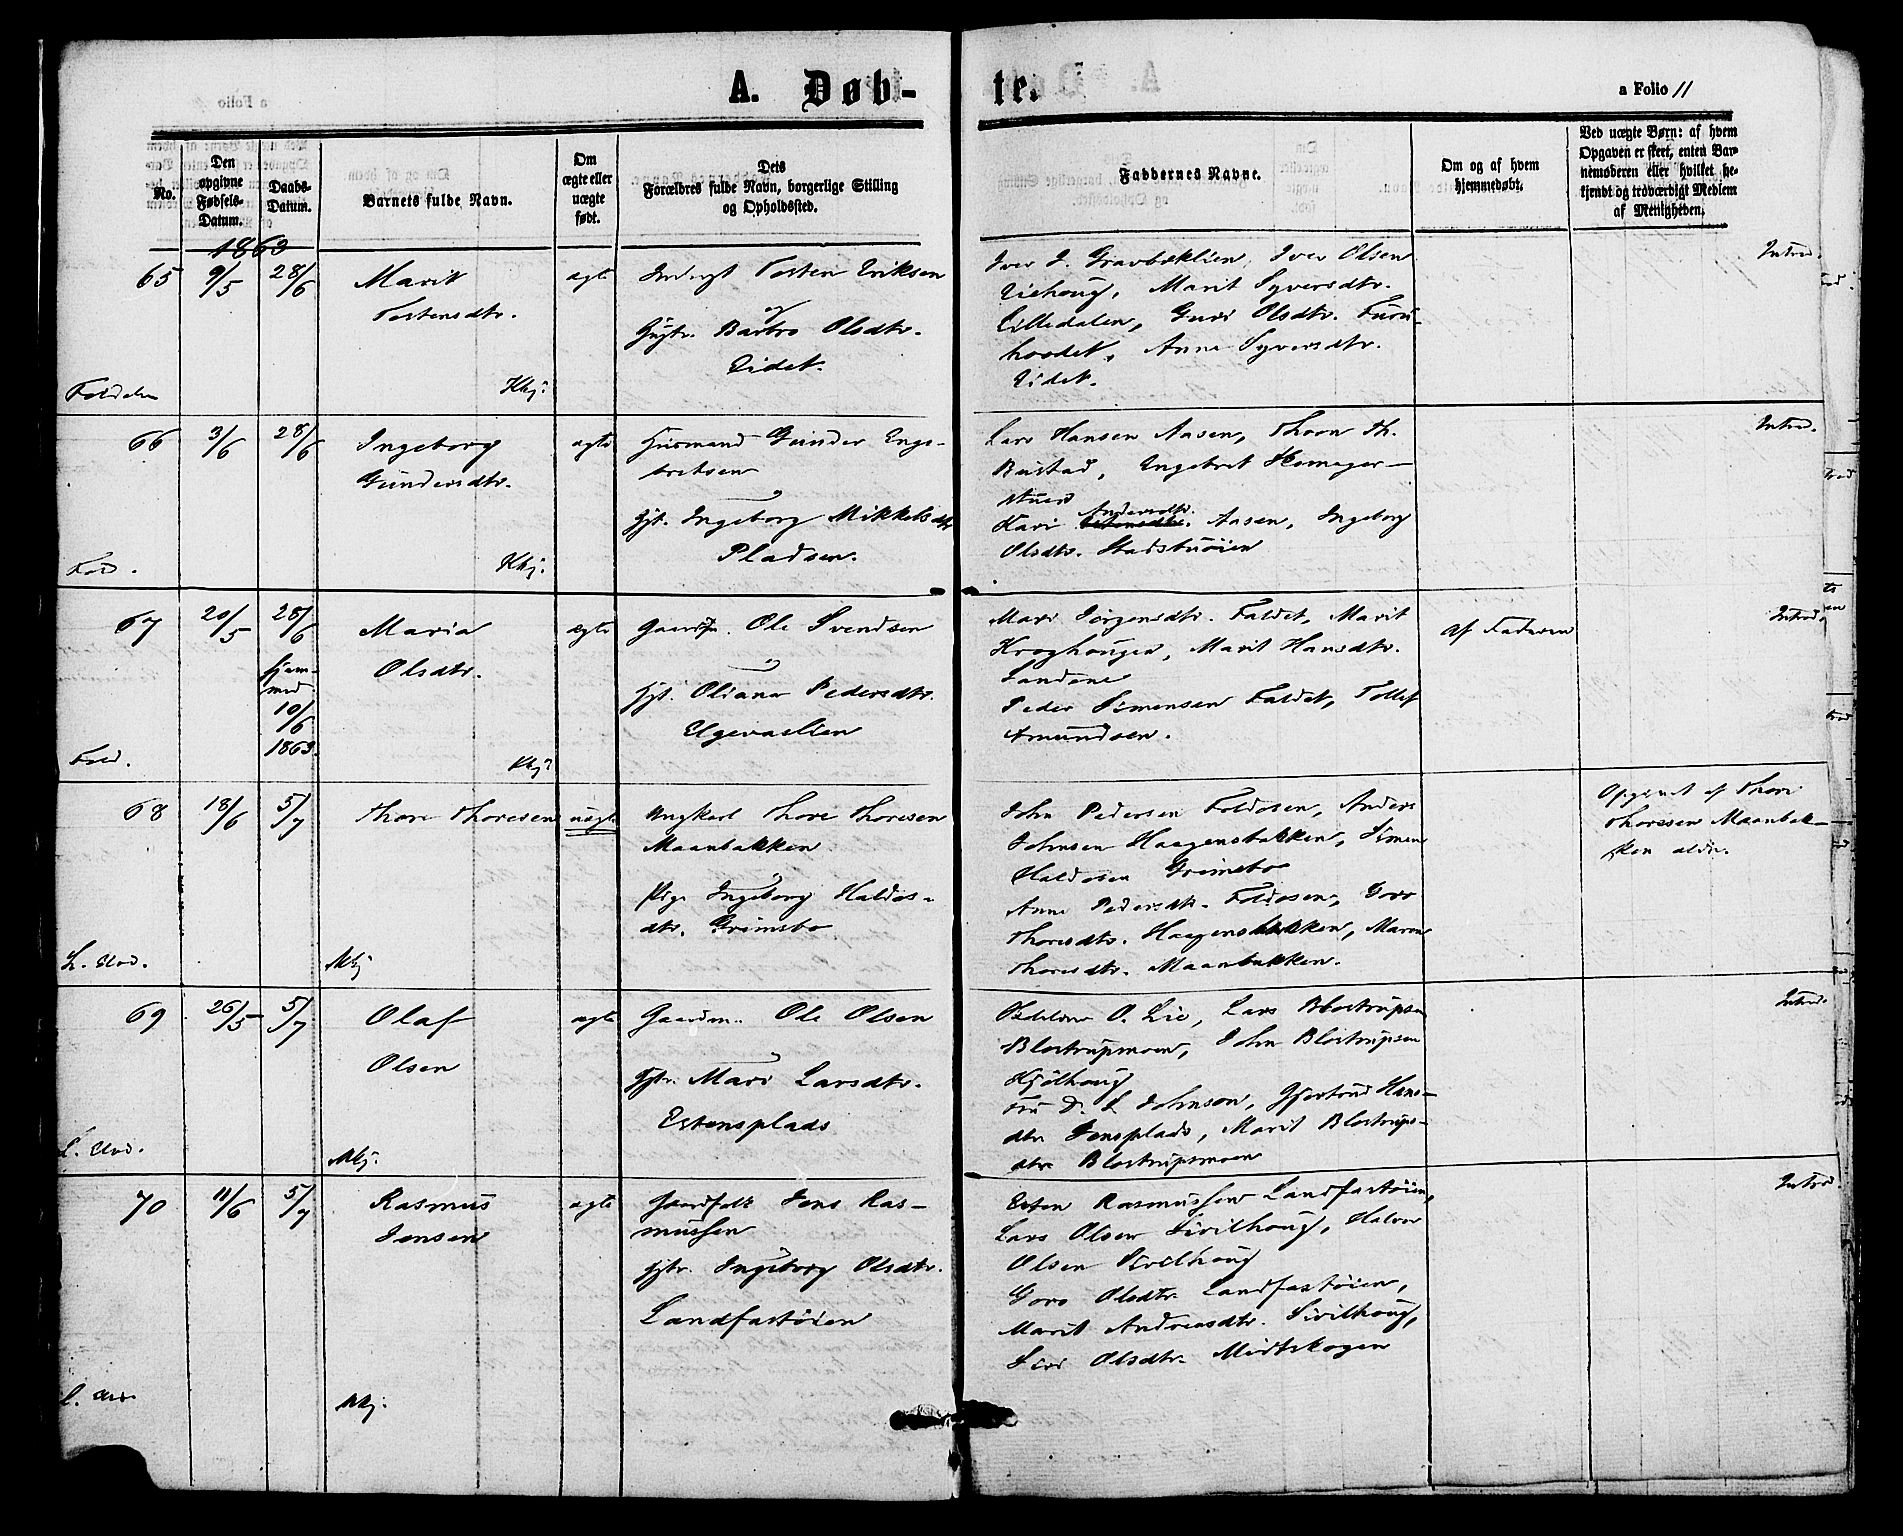 A. Døb-
te.
a Folio 11
No.
Den
opgivne
Fødsels-
Datum.
Daabs-
Datum.
Barnets fulde Navn.
Om
ægte eller
uægte
født.
Dets
Forældres fulde Navn, borgerlige Stilling
og Opholdssted.
Faddernes Navne.
Om og af hvem
hjemmedøbt.
Ved uægte Børn: af hvem
Opgaven er skeet, enten Bar-
nemoderen eller hvilket be-
kjendt og troværdigt Medlem
af Menigheden.
1863
65
9/5
28/6
Marit
Tostensdtr.
ægte
Tosten Eriksen
og
Hustr. Barbro Olsdtr.
Eidet.
Iver J. Gravbæklien, Iver Olsen
Marit Syversdtr.
Lilledalen, Guri Olsdtr. Furu-
hovdet, Anne Syversdtr.
Eidet.
Introd.
Foldalen
Hkj:
66
3/6
28/6
Ingeborg
Gundersdtr.
ægte
Husmand Gunder Enge-
bretsen
Hst. Ingeborg Mikkelsdtr
Pladsen.
Lars Hansen Aasen, Thorn Th.
Bustad, Ingebret
stuen
Kari Andersdtr. Aasen, Ingeborg
Olsdtr. Stadsbuøien
Introd.
Fold.
Hkj:
67
20/5
28/6
hjem-
med
10/6
1863.
Maria
Olsdtr.
ægte
Gaardm. Ole Svendsen
Hst. Oliana Pedersdtr.
Elgevaslien
Mari Jørgensdtr. Faldet, Marit
Kroghougen, Marit Hansdtr.
Sandene
Peder Simensen Faldet, Tollef
Amundsen.
af Faderen
Introd.
Fold.
Hkj:
68
18/6
5/7
Thore Thoresen
uægte
Ungkarl Thore Thoresen
Maanbakken
Pige Ingeborg Haldos-
dtr. Grimsbo
John Pedersen Foldosen, Anders
Johnsen Haagensbakken, Simen
Haldosen Grimsbo
Anne Pedersdtr. Foldosen, Goro
Thoresdtr. Haagensbakken, Maren
Thoresdtr. Maanbakken.
Opgivet af Thore
Thoresen Maanbak-
ken
L. Uvd.
Mkj
69
26/5
5/7
Olaf
Olsen
ægte
Gaardm. Ole Olsen
Hstr. Mari Larsdtr.
Estensplads
O. Lie, Lars Blostrupsen
Blostrupmoen, John Blostrupsen
Kjølhoug
Fru D. L. Johnson, Gjertrud Hans-
dtr Jensplads, Marit Blostrups-
dtr Blostrupmoen
Introd.
L. Uvd.
Mkj:
70
11/6
5/7
Rasmus
Jensen
ægte
Gaardfolk Jens Ras-
mussen
Hstr. Ingeborg Olsdtr.
Landfastøien
Esten Rasmussen Landfastøien,
Lars Olsen Sivilhoug, Halvor
Olsen Sivilhoug
Goro Olsdtr. Landfastøien,
Marit Andreasdtr. Sivilhoug,
Siri Olsdtr. Midtskogen
Introd.
L. Uvd.
Mkj: